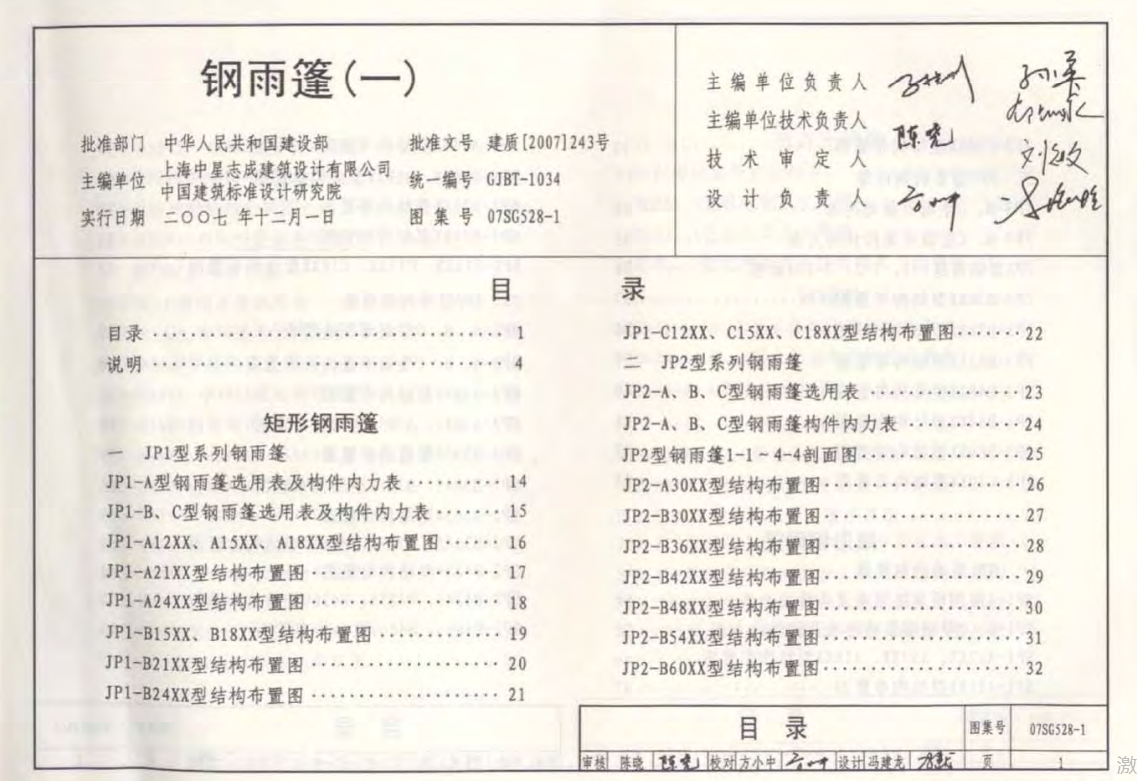 钢雨篷(一)
批准部门 中华人民共和国建设部 批准文号 建质[2007]243号
主编单位 上海中星志成建筑设计有限公司
中国建筑标准设计研究院 统一编号 GJBT-1034
实行日期 二〇〇七年十二月一日 图集号 07SG528-1
主编单位负责人
主编单位技术负责人
技术审定人
设计负责人
目 录
目录 1
说明 4
矩形钢雨篷
一 JP1型系列钢雨篷
JP1-A型钢雨篷选用表及构件内力表 14
JP1-B、C型钢雨篷选用表及构件内力表 15
JP1-A12XX、A15XX、A18XX型结构布置图 16
JP1-A21XX型结构布置图 17
JP1-A24XX型结构布置图 18
JP1-B15XX、B18XX型结构布置图 19
JP1-B21XX型结构布置图 20
JP1-B24XX型结构布置图 21
JP1-C12XX、C15XX、C18XX型结构布置图 22
二 JP2型系列钢雨篷
JP2-A、B、C型钢雨篷选用表 23
JP2-A、B、C型钢雨篷构件内力表 24
JP2型钢雨篷1-1~4-4剖面图 25
JP2-A30XX型结构布置图 26
JP2-B30XX型结构布置图 27
JP2-B36XX型结构布置图 28
JP2-B42XX型结构布置图 29
JP2-B48XX型结构布置图 30
JP2-B54XX型结构布置图 31
JP2-B60XX型结构布置图 32
目 录 图集号 07SG528-1
审核 陈晓 校对 方小中 设计 冯建龙 页 1
激